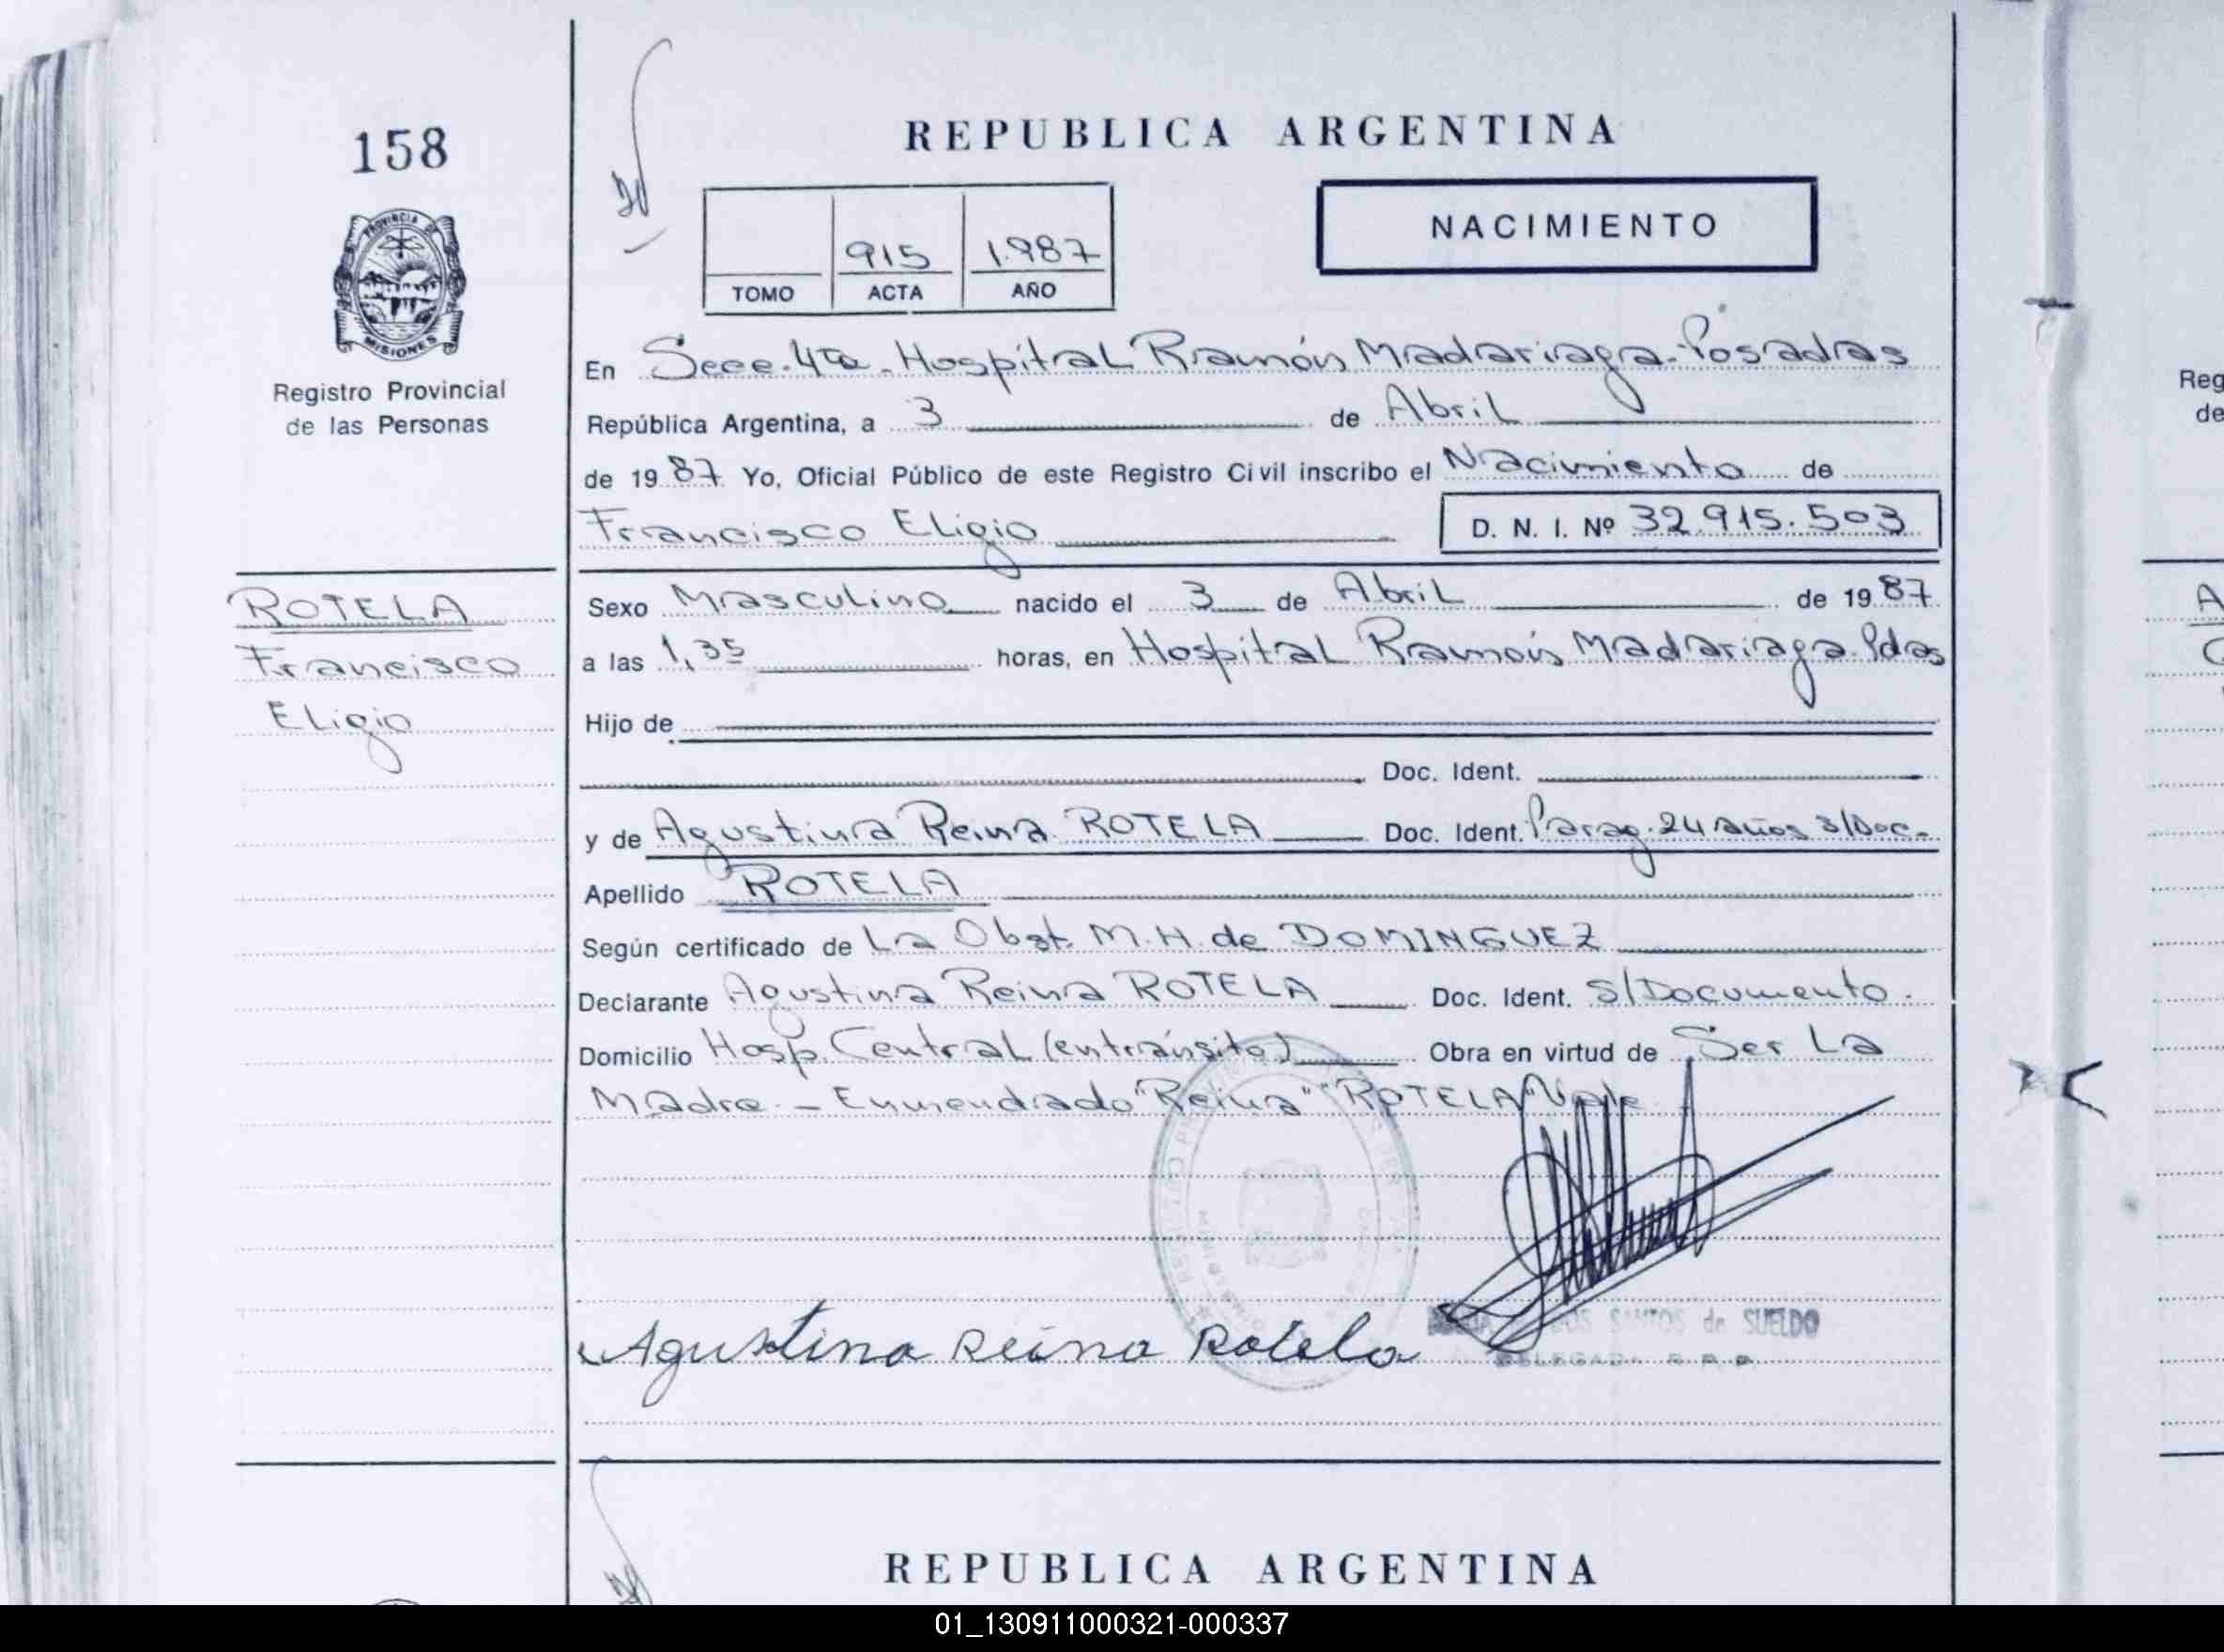 158
PROVINCIA DE
MISIONES
Registro Provincial
de las Personas
ROTELA
Francisco
Eligio
REPUBLICA ARGENTINA
NACIMIENTO
915 1.987
TOMO ACTA AÑO
En Secc. 4ta. Hospital Ramón Madariaga - Posadas
República Argentina, a 3 de Abril
de 19 87 Yo, Oficial Público de este Registro Civil inscribo el Nacimiento de
Francisco Eligio D. N. I. Nº 32.915.503
Sexo Masculino nacido el 3 de Abril de 19 87
a las 1,35 horas, en Hospital Ramón Madariaga. Pdas
Hijo de
Doc. Ident.
y de Agustina Reina ROTELA Doc. Ident. Parag. 24 años s/Doc.
Apellido ROTELA
Según certificado de La Obst. M.H. de DOMINGUEZ
Declarante Agustina Reina ROTELA Doc. Ident. S/Documento.
Domicilio Hosp. Central (en tránsito) Obra en virtud de Ser La
Madre. - Enmendado "Reina" "ROTELA" Vale
SANTOS de SUELDO
Agustina Reina Rotela DELEGADA R. P. P.
REPUBLICA ARGENTINA
Reg
de
A
01_130911000321-000337